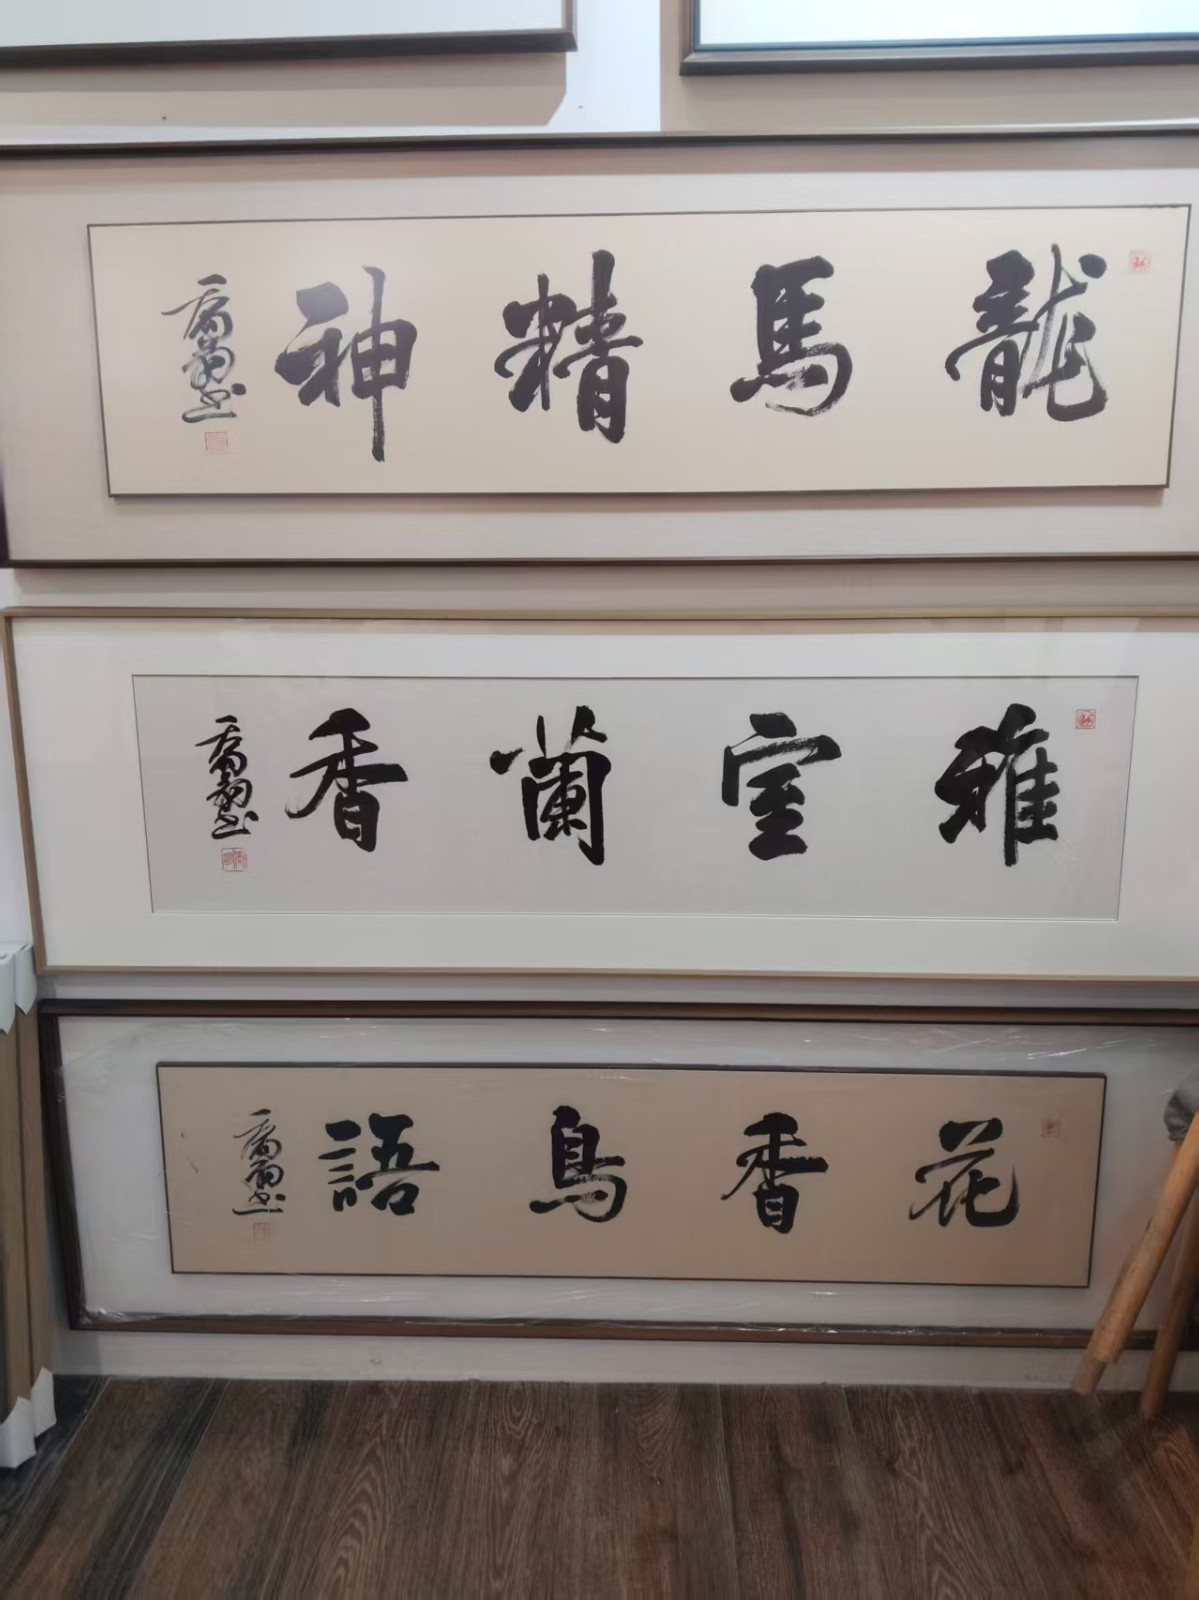 龍馬精神
雅室蘭香
花香鳥語